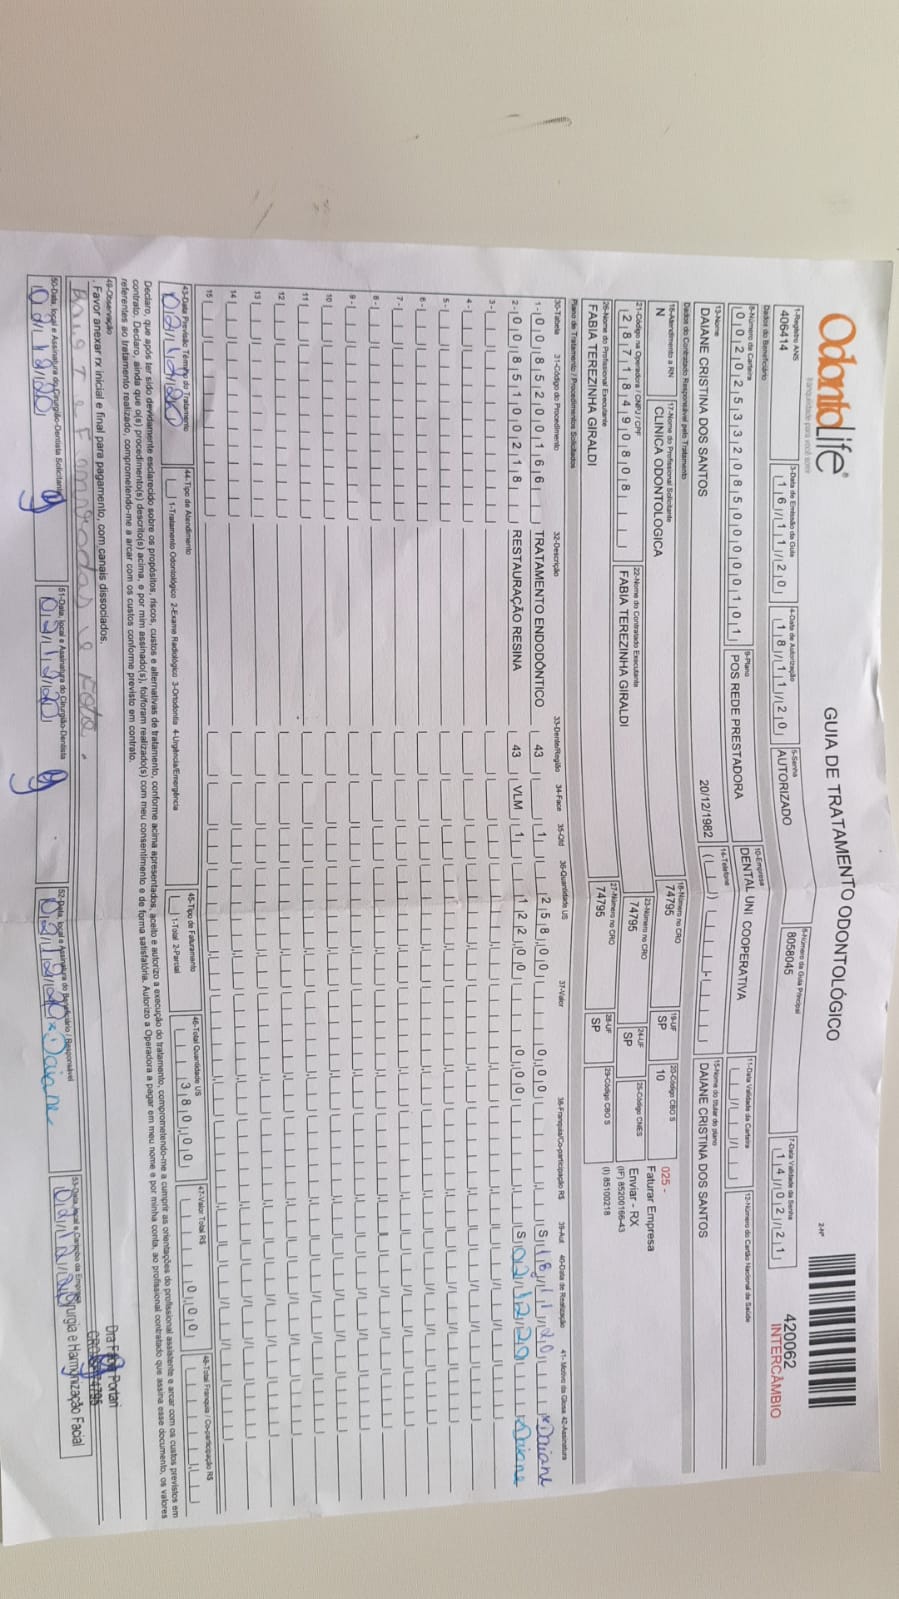 OdontoLife®
tranquilidade para você sorrir
GUIA DE TRATAMENTO ODONTOLÓGICO
2-Nº
420062
INTERCÂMBIO
1-Registro ANS
406414
3-Data de Emissão da Guia
16/11/20
4-Data de Autorização
18/11/20
5-Senha
AUTORIZADO
6-Número da Guia Principal
8058045
7-Data Validade da Senha
14/02/21
Dados do Beneficiário
8-Número da Carteira
00202533208500000101
9-Plano
POS REDE PRESTADORA
10-Empresa
DENTAL UNI COOPERATIVA
11-Data Validade da Carteira
12-Número do Cartão Nacional de Saúde
13-Nome
DAIANE CRISTINA DOS SANTOS
20/12/1982
14-Telefone
15-Nome do titular do plano
DAIANE CRISTINA DOS SANTOS
Dados do Contratado Responsável pelo Tratamento
16-Atendimento a RN
N
17-Nome do Profissional Solicitante
CLINICA ODONTOLOGICA
18-Número no CRO
74795
19-UF
SP
20-Código CBO S
10
025 -
Faturar Empresa
21-Código na Operadora / CNPJ / CPF
28718490808
22-Nome do Contratado Executante
FABIA TEREZINHA GIRALDI
23-Número no CRO
74795
24-UF
SP
25-Código CNES
Enviar - RX
(IF) 85200166-43
(I) 85100218
26-Nome do Profissional Executante
FABIA TEREZINHA GIRALDI
27-Número no CRO
74795
28-UF
SP
29-Código CBO S
Plano de Tratamento / Procedimentos Solicitados
30-Tabela 31-Código do Procedimento 32-Descrição 33-Dente/Região 34-Face 35-Qtd 36-Quantidade US 37-Valor 38-Franquia/Co-participação R$ 39-Aut 40-Data de Realização 41- Motivo da Glosa 42-Assinatura
1 - 00 85200166 TRATAMENTO ENDODÔNTICO 43 1 258,00 0,00 S 18/11/20 x Daiane
2 - 00 85100218 RESTAURAÇÃO RESINA 43 VLM 1 122,00 0,00 S 02/12/20 x Daiane
3 -
4 -
5 -
6 -
7 -
8 -
9 -
10
11
12
13
14
15
43-Data Previsão Término do Tratamento
02/12/20
44-Tipo de Atendimento
1-Tratamento Odontológico 2-Exame Radiológico 3-Ortodontia 4-Urgência/Emergência
45-Tipo de Faturamento
1-Total 2-Parcial
46-Total Quantidade US
380,00
47-Valor Total R$
0,00
48-Total Franquia / Co-participação R$
Declaro, que após ter sido devidamente esclarecido sobre os propósitos, riscos, custos e alternativas de tratamento, conforme acima apresentados, aceito e autorizo a execução do tratamento, comprometendo-me a cumprir as orientações do profissional assistente e arcar com os custos previstos em
contrato. Declaro, ainda que o(s) procedimento(s) descrito(s) acima, e por mim assinado(s), foi/foram realizado(s) com meu consentimento e de forma satisfatória. Autorizo a Operadora a pagar em meu nome e por minha conta, ao profissional contratado que assina esse documento, os valores
referentes ao tratamento realizado, comprometendo-me a arcar com os custos conforme previsto em contrato.
49-Observação
. Favor anexar rx inicial e final para pagamento, com canais dissociados.
50-Data, local e Assinatura do Cirurgião-Dentista Solicitante
02/12/20
51-Data, local e Assinatura do Cirurgião-Dentista
02/12/20
52-Data, local e Assinatura do Beneficiário / Responsável
02/12/20 x Daiane
53-Data, local e Carimbo da Empresa
02/12/20
Cirurgia e Harmonização Facial